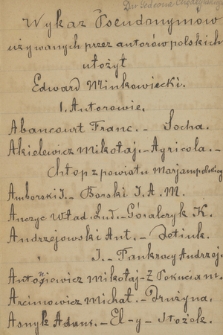 Wykaz Pseudonymów
używanych przez autorów polskich
ułożył
Edward Minkowiecki.
1. Autorowie.
Abancourt Franc. - Socha.
Akielewicz Mikołaj. - Agricola. -
Chłop z powiatu Marjampolskiego
Amborski J. - Borski J. A. M.
Anczyc Wład. Lud. - Góralczyk K.
Andrzejowski Ant. - Detiuk.
J. - Pankracy Andrzej.
Antosiewicz Mikołaj - Z Pokucian.
Arcimowicz Michał. - Drużyna.
Asnyk Adam. - El-y - Stożek.